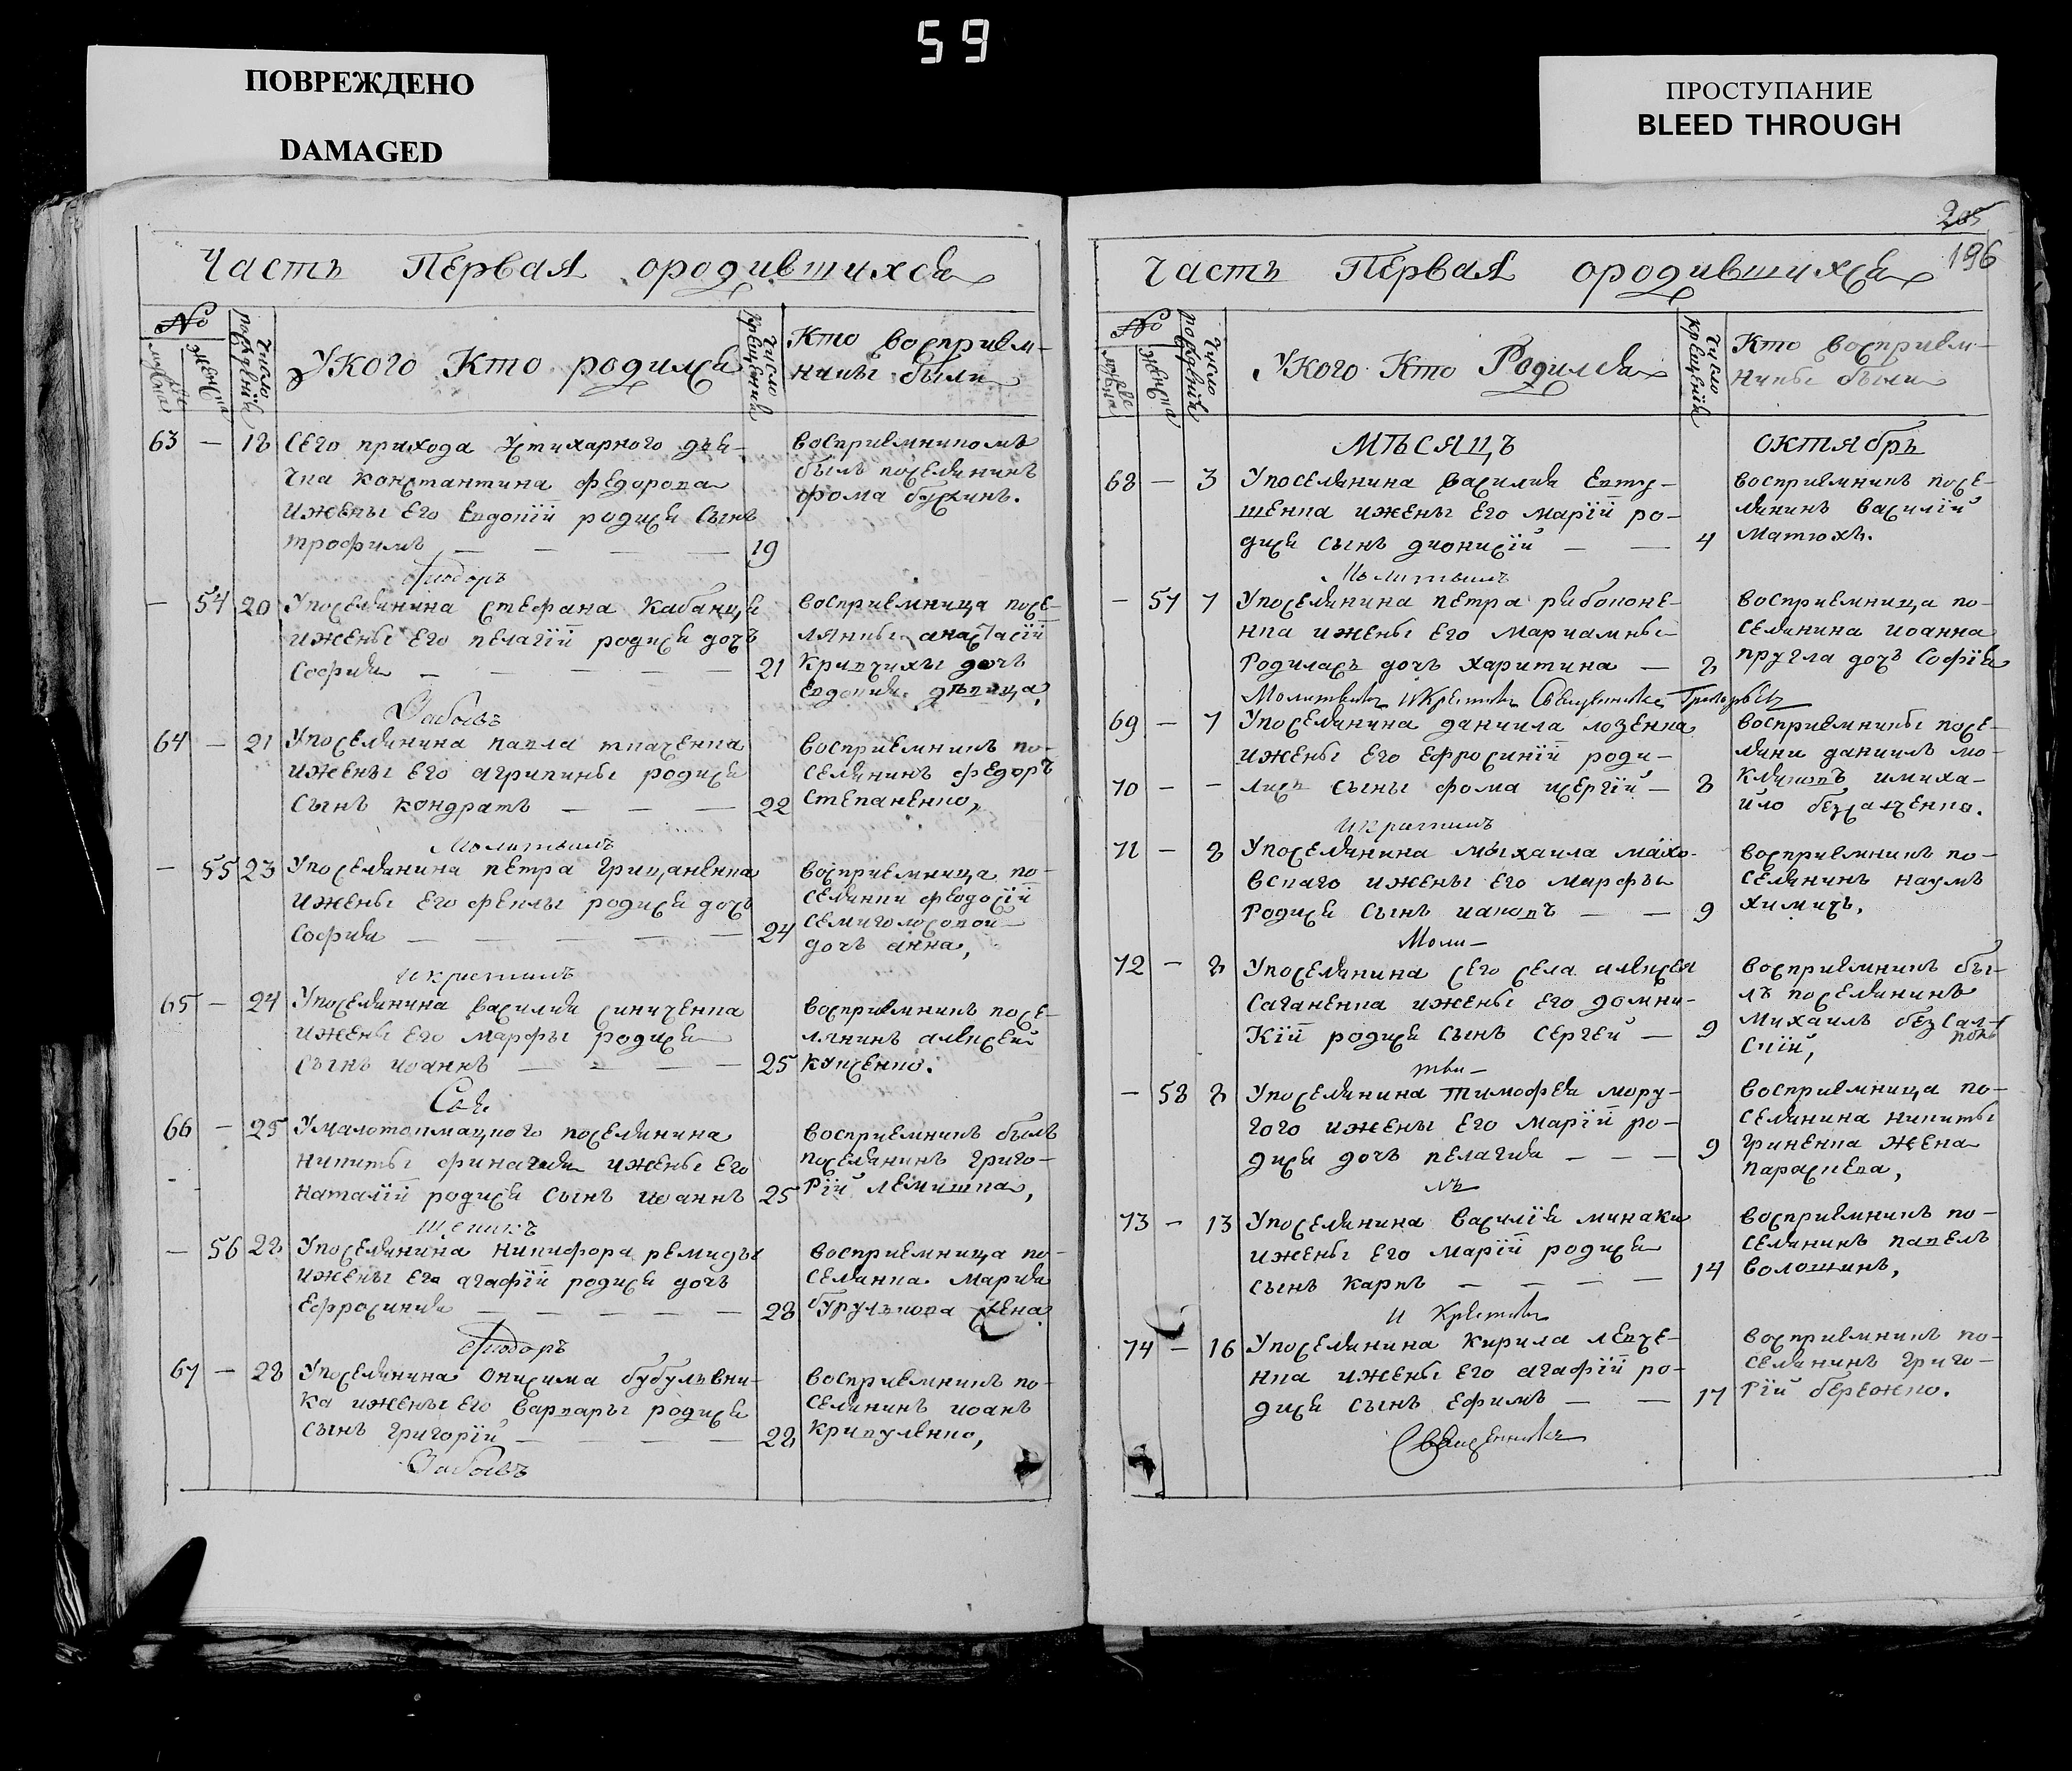 59
ПОВРЕЖДЕНО
DAMAGED
ПРОСТУПАНИЕ
BLEED THROUGH
Часть Первая ородившихся
№
мужеска
женска
число рождения
Укого Кто родился
число крещения
Кто восприем-
ники были
63 — 18 Сего прихода Устихарного дья-
чка Константина Федорова
ижены Его Евдокіи родися Сынъ
трофимъ — — — — 19
восприемникомъ
былъ поселянинъ
фома бухинъ.
Феодоръ
— 54 20 Упоселянина Стефана Кабанця
ижены Его пелагіи родися дочъ
София — — — — 21
восприемница посе-
лянины анастасіи
Кривчихы дочъ
Евдокия дѣвица,
Забоевъ
64 — 21 Упоселянина павла ткаченка
ижены Его агрипины родися
Сынъ кондратъ — — — 22
восприемникъ по-
селянинъ федоръ
Степаненко,
Молитвилъ
— 55 23 Упоселянина петра Грицаненка
ижены Его феклы родися дочъ
София — — — — 24
восприемница по-
селянки феодосіи
Семиголосовои
дочъ анна,
и крестилъ
65 — 24 Упоселянина василия Синиченка
ижены Его марфы родися
сынъ иоаннъ — — — 25
восприемникъ посе-
лянинъ алексей
куценко.
Свя
66 — 25 Умалотокмацкого поселянина
никиты финагеля ижены Его
наталіи родися сынъ иоаннъ 25
восприемникъ былъ
поселянинъ григо-
рій лемишка,
щеникъ
— 56 28 Упоселянина никифора ремидъя
ижены Его агафіи родися дочъ
Ефросиния — — — — 28
восприемница по-
селянка Мария
бурулькова жена.
Феодоръ
67 — 28 Упоселянина Онисима бубульвни-
ка ижены Его Варвары родися
сынъ григорій — — — — 28
восприемникъ по-
селянинъ иоанъ
кривуленко,
Забоевъ
205
196
Часть Первая ородившихся
№
мужеска
женска
число рождения
Укого Кто Родился
число крещения
Кто восприем-
ники были
МѢСЯЦЪ ОКТЯбрь
68 — 3 Упоселянина василия Евту-
шенка ижены Его Маріи ро-
дися сынъ дионисій — — 4
восприемникъ посе-
лянинъ василій
Матюхъ.
Молитвилъ
— 57 7 Упоселянина петра рибоконе-
нка ижены Его Мариамны
Родиласъ дочъ харитина — 8
восприемница по-
селянина иоанна
пругла дочъ Софія
Молитвилъ и Крестилъ Священникъ Григорій
69 — 7 Упоселянина даниила лозенка
ижены Его Ефросиніи роди-
70 — — лись сыны фома исергій — 8
восприемники посе-
ляни даниилъ мо-
кляковъ имиха-
ило безсалченко.
и крестилъ
71 — 8 Упоселянина михаила махо-
вскаго ижены Его марфы
Родися Сынъ иаковъ — — 9
восприемникъ по-
селянинъ наумъ
химичъ.
Моли-
72 — 8 Упоселянина сего села алексея
Саганенка ижены Его домни-
кіи родися сынъ Сергей — 9
восприемникъ бы-
лъ поселянинъ
Михаилъ безсал-
скій,
тви-
— 58 8 Упоселянина тимофея мору-
гого ижены Его маріи ро-
дися дочъ пелагия — — — 9
восприемница по-
селянина никиты
гриненка жена
параскева,
лъ
73 — 13 Упоселянина василія минаки
ижены Его маріи родися
сынъ карпъ — — — — 14
восприемникъ по-
селянинъ павелъ
волошинъ,
и Крестилъ
74 — 16 Упоселянина кирила левче-
нка ижены Его агафіи ро-
дися сынъ ефимъ — — 17
восприемникъ по-
селянинъ григо-
рій бережно.
Священникъ